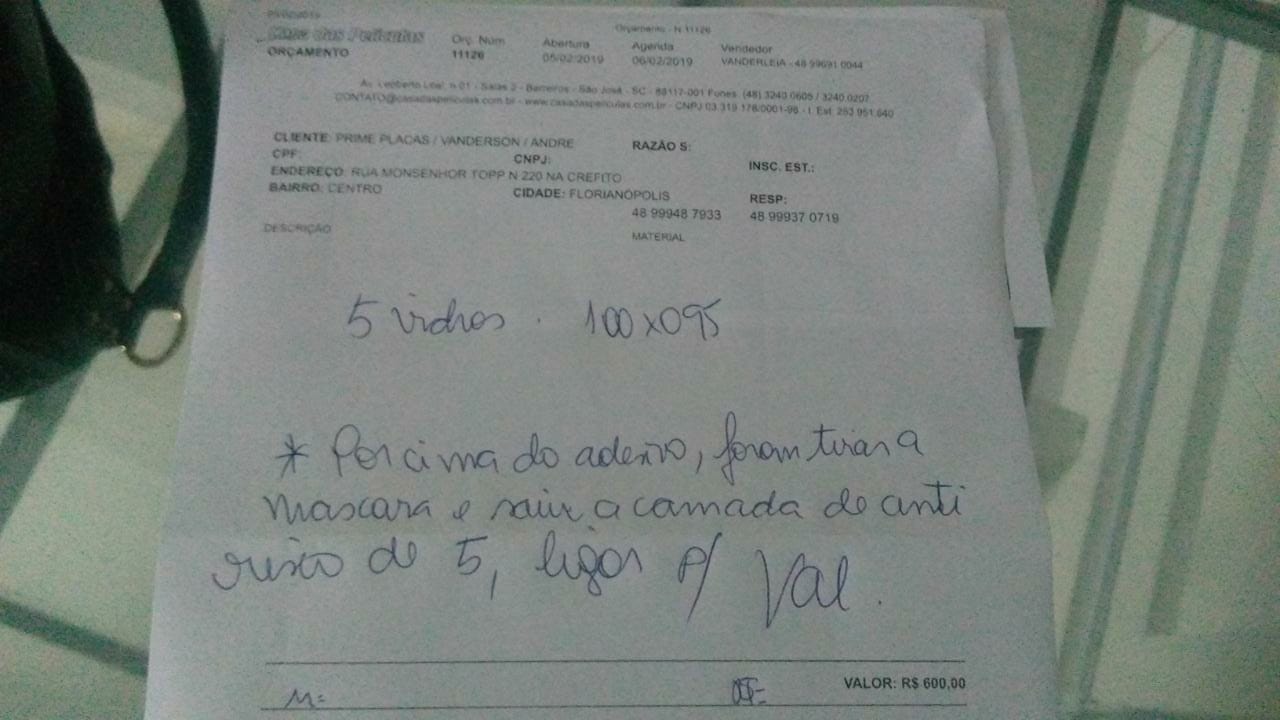 Orçamento - N 11126
Casa das Películas Orç. Núm Abertura Agenda Vendedor
ORÇAMENTO 11126 05/02/2019 06/02/2019 VANDERLEIA - 48 99691 0044
Av. Leoberto Leal, n 01 - Salas 2 - Barreiros - São José - SC - 88117-001 Fones: (48) 3240 0605 / 3240 0207
CONTATO@casadaspeliculas.com.br - www.casadaspeliculas.com.br - CNPJ 03.319.178/0001-98 - I. Est. 253.951.640
CLIENTE: PRIME PLACAS / VANDERSON / ANDRE RAZÃO S:
CPF: CNPJ: INSC. EST.:
ENDEREÇO: RUA MONSENHOR TOPP N 220 NA CREFITO
BAIRRO: CENTRO CIDADE: FLORIANÓPOLIS RESP:
48 99948 7933 48 99937 0719
DESCRIÇÃO MATERIAL
5 vidros . 100x095
* Por cima do adesivo, foram tirar a
mascara e saiu a camada de anti
risco de 5, ligar p/ Val.
M= VALOR: R$ 600,00